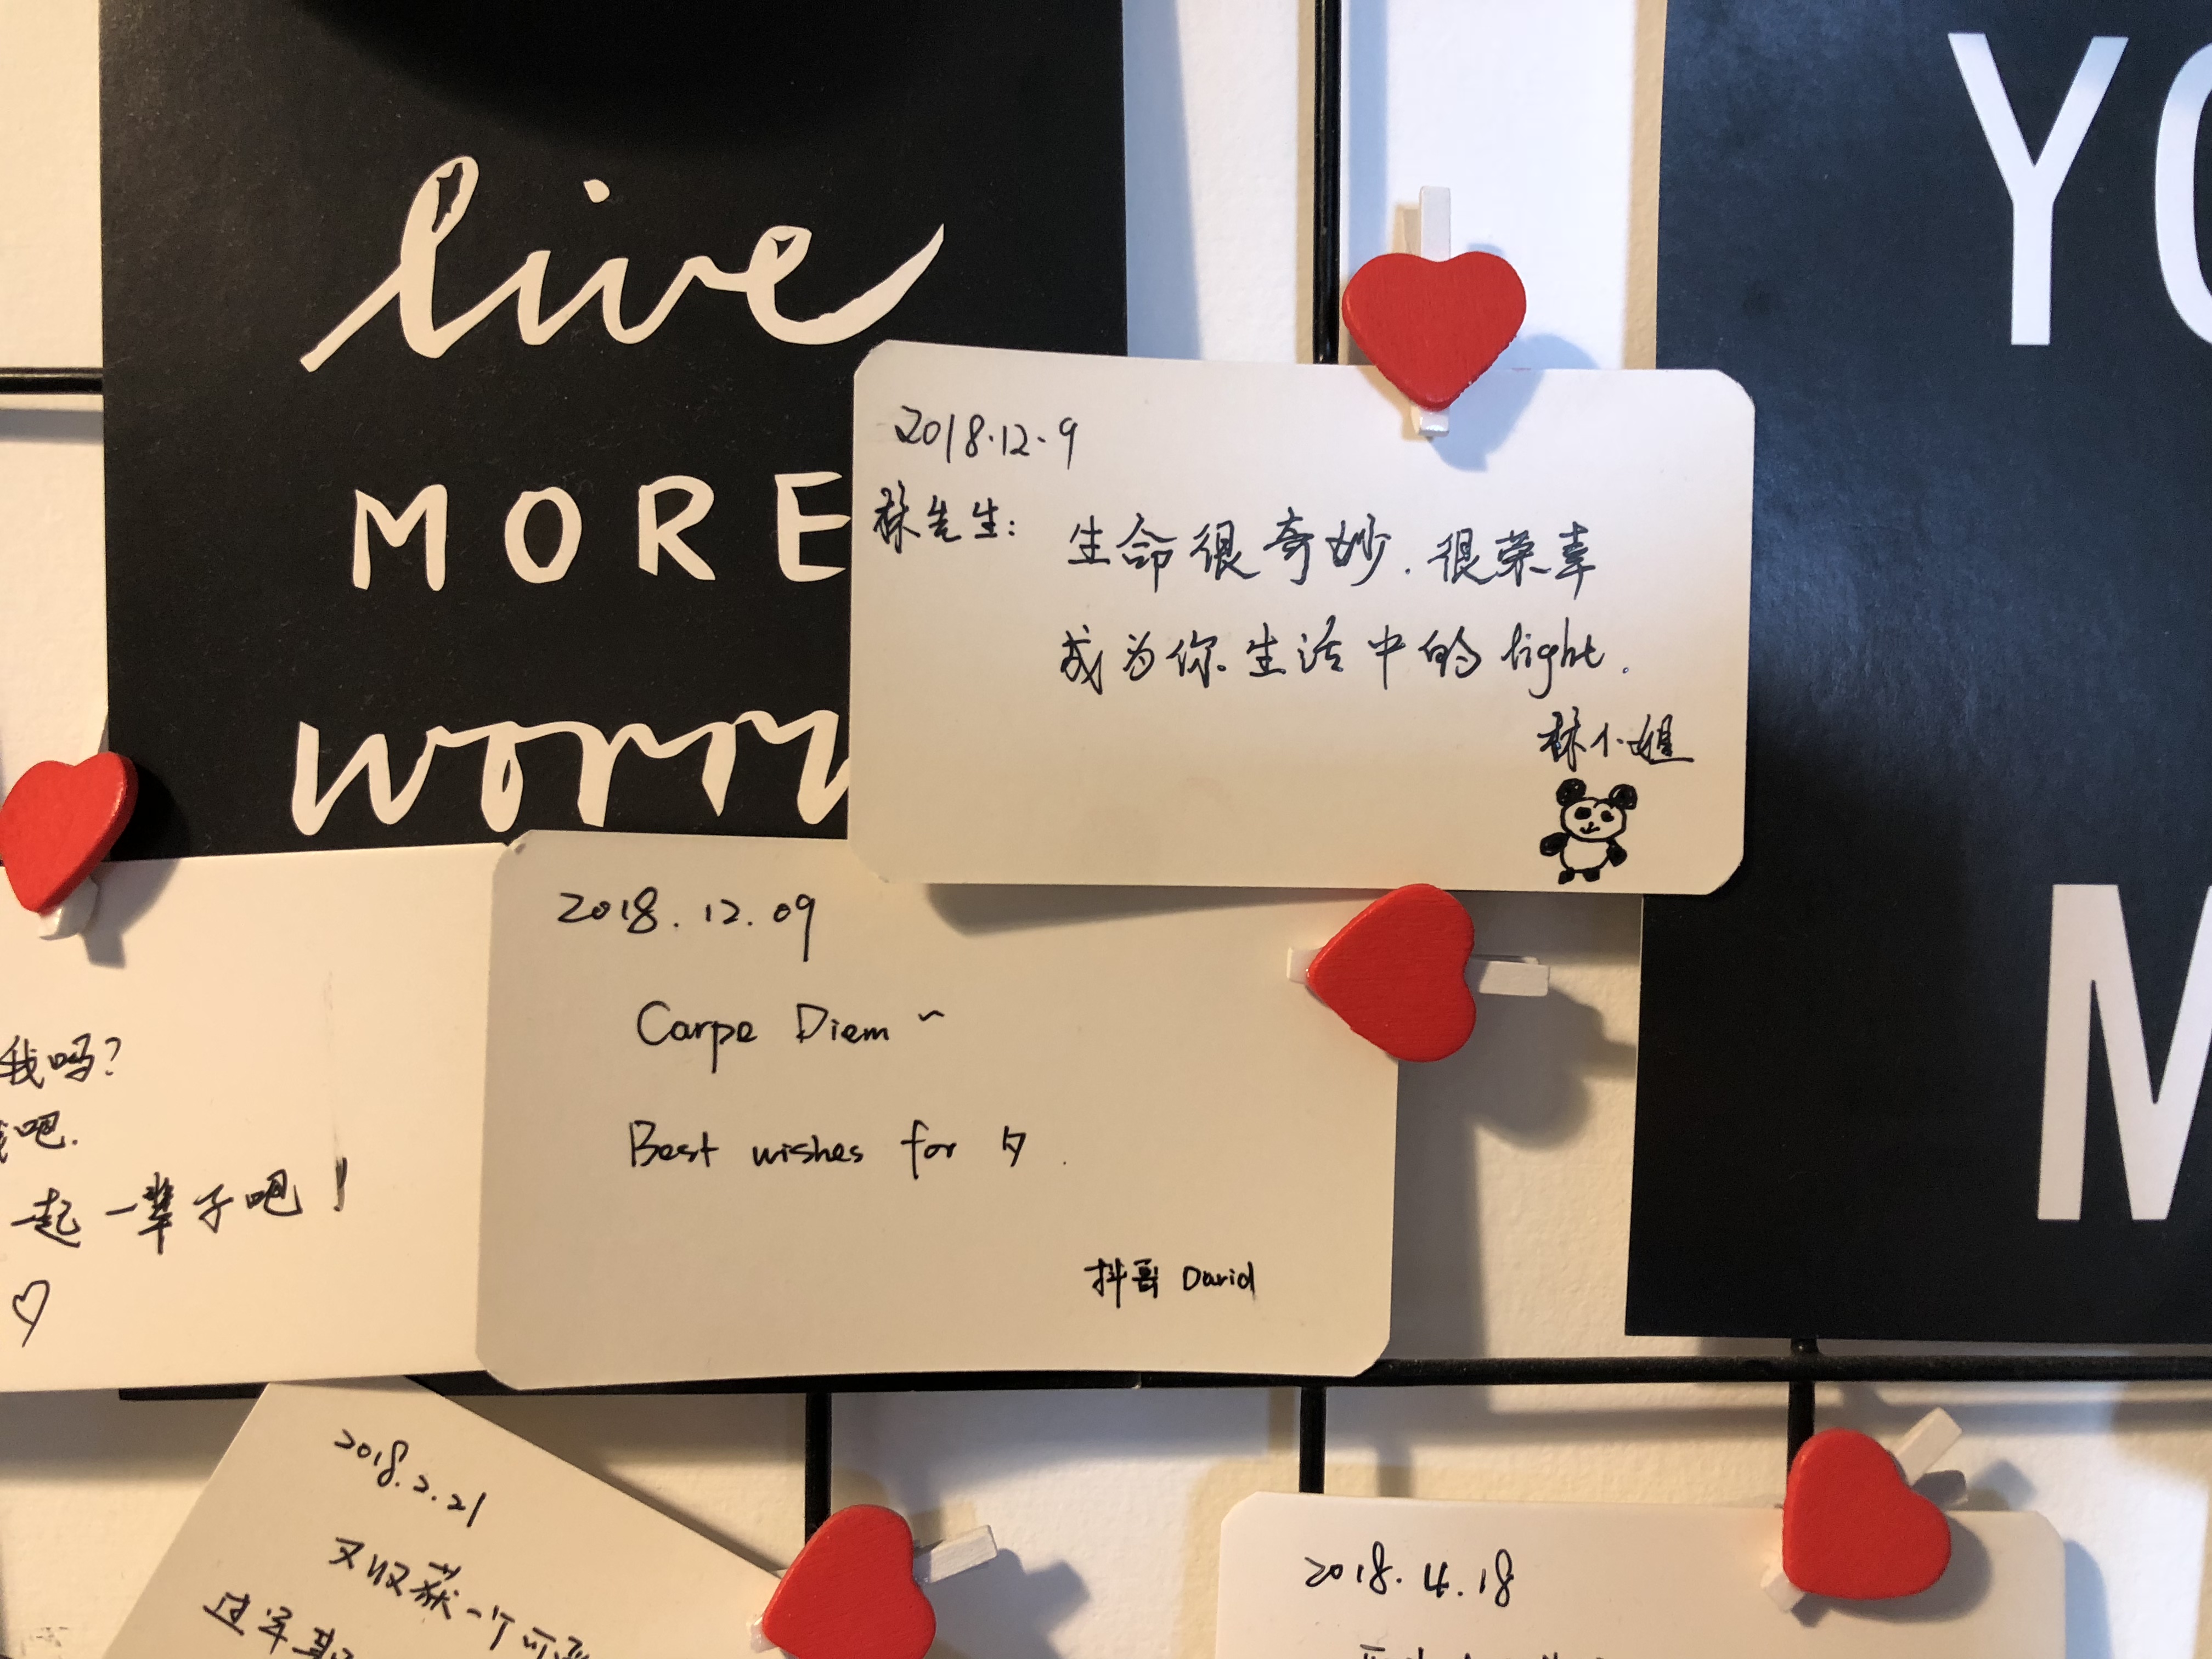 live
MORE
worr
YO
M
2018.12.9
林先生：
生命很奇妙．很荣幸
成为你生活中的light.
林小姐
2018.12.09
Carpe Diem ~
Best wishes for 夕.
抖哥 David
我吗？
吧.
一起一辈子吧！
2018.2.21
又收获一个可爱
过年
2018.4.18